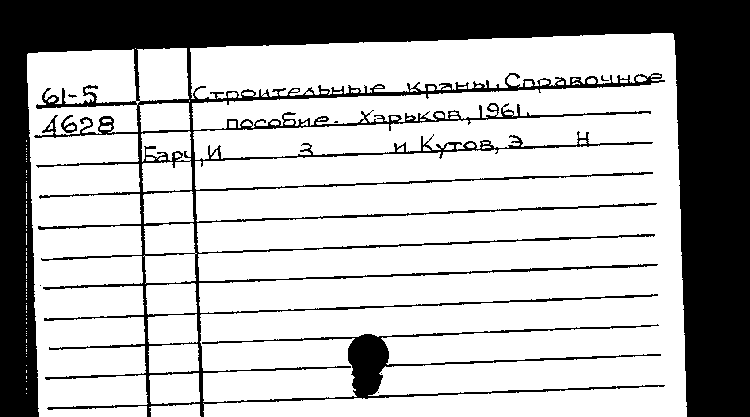 61-5 Строительные краны. Справочное
4628 пособие. Харьков, 1961.
Барч, И З и Кутов, Э Н